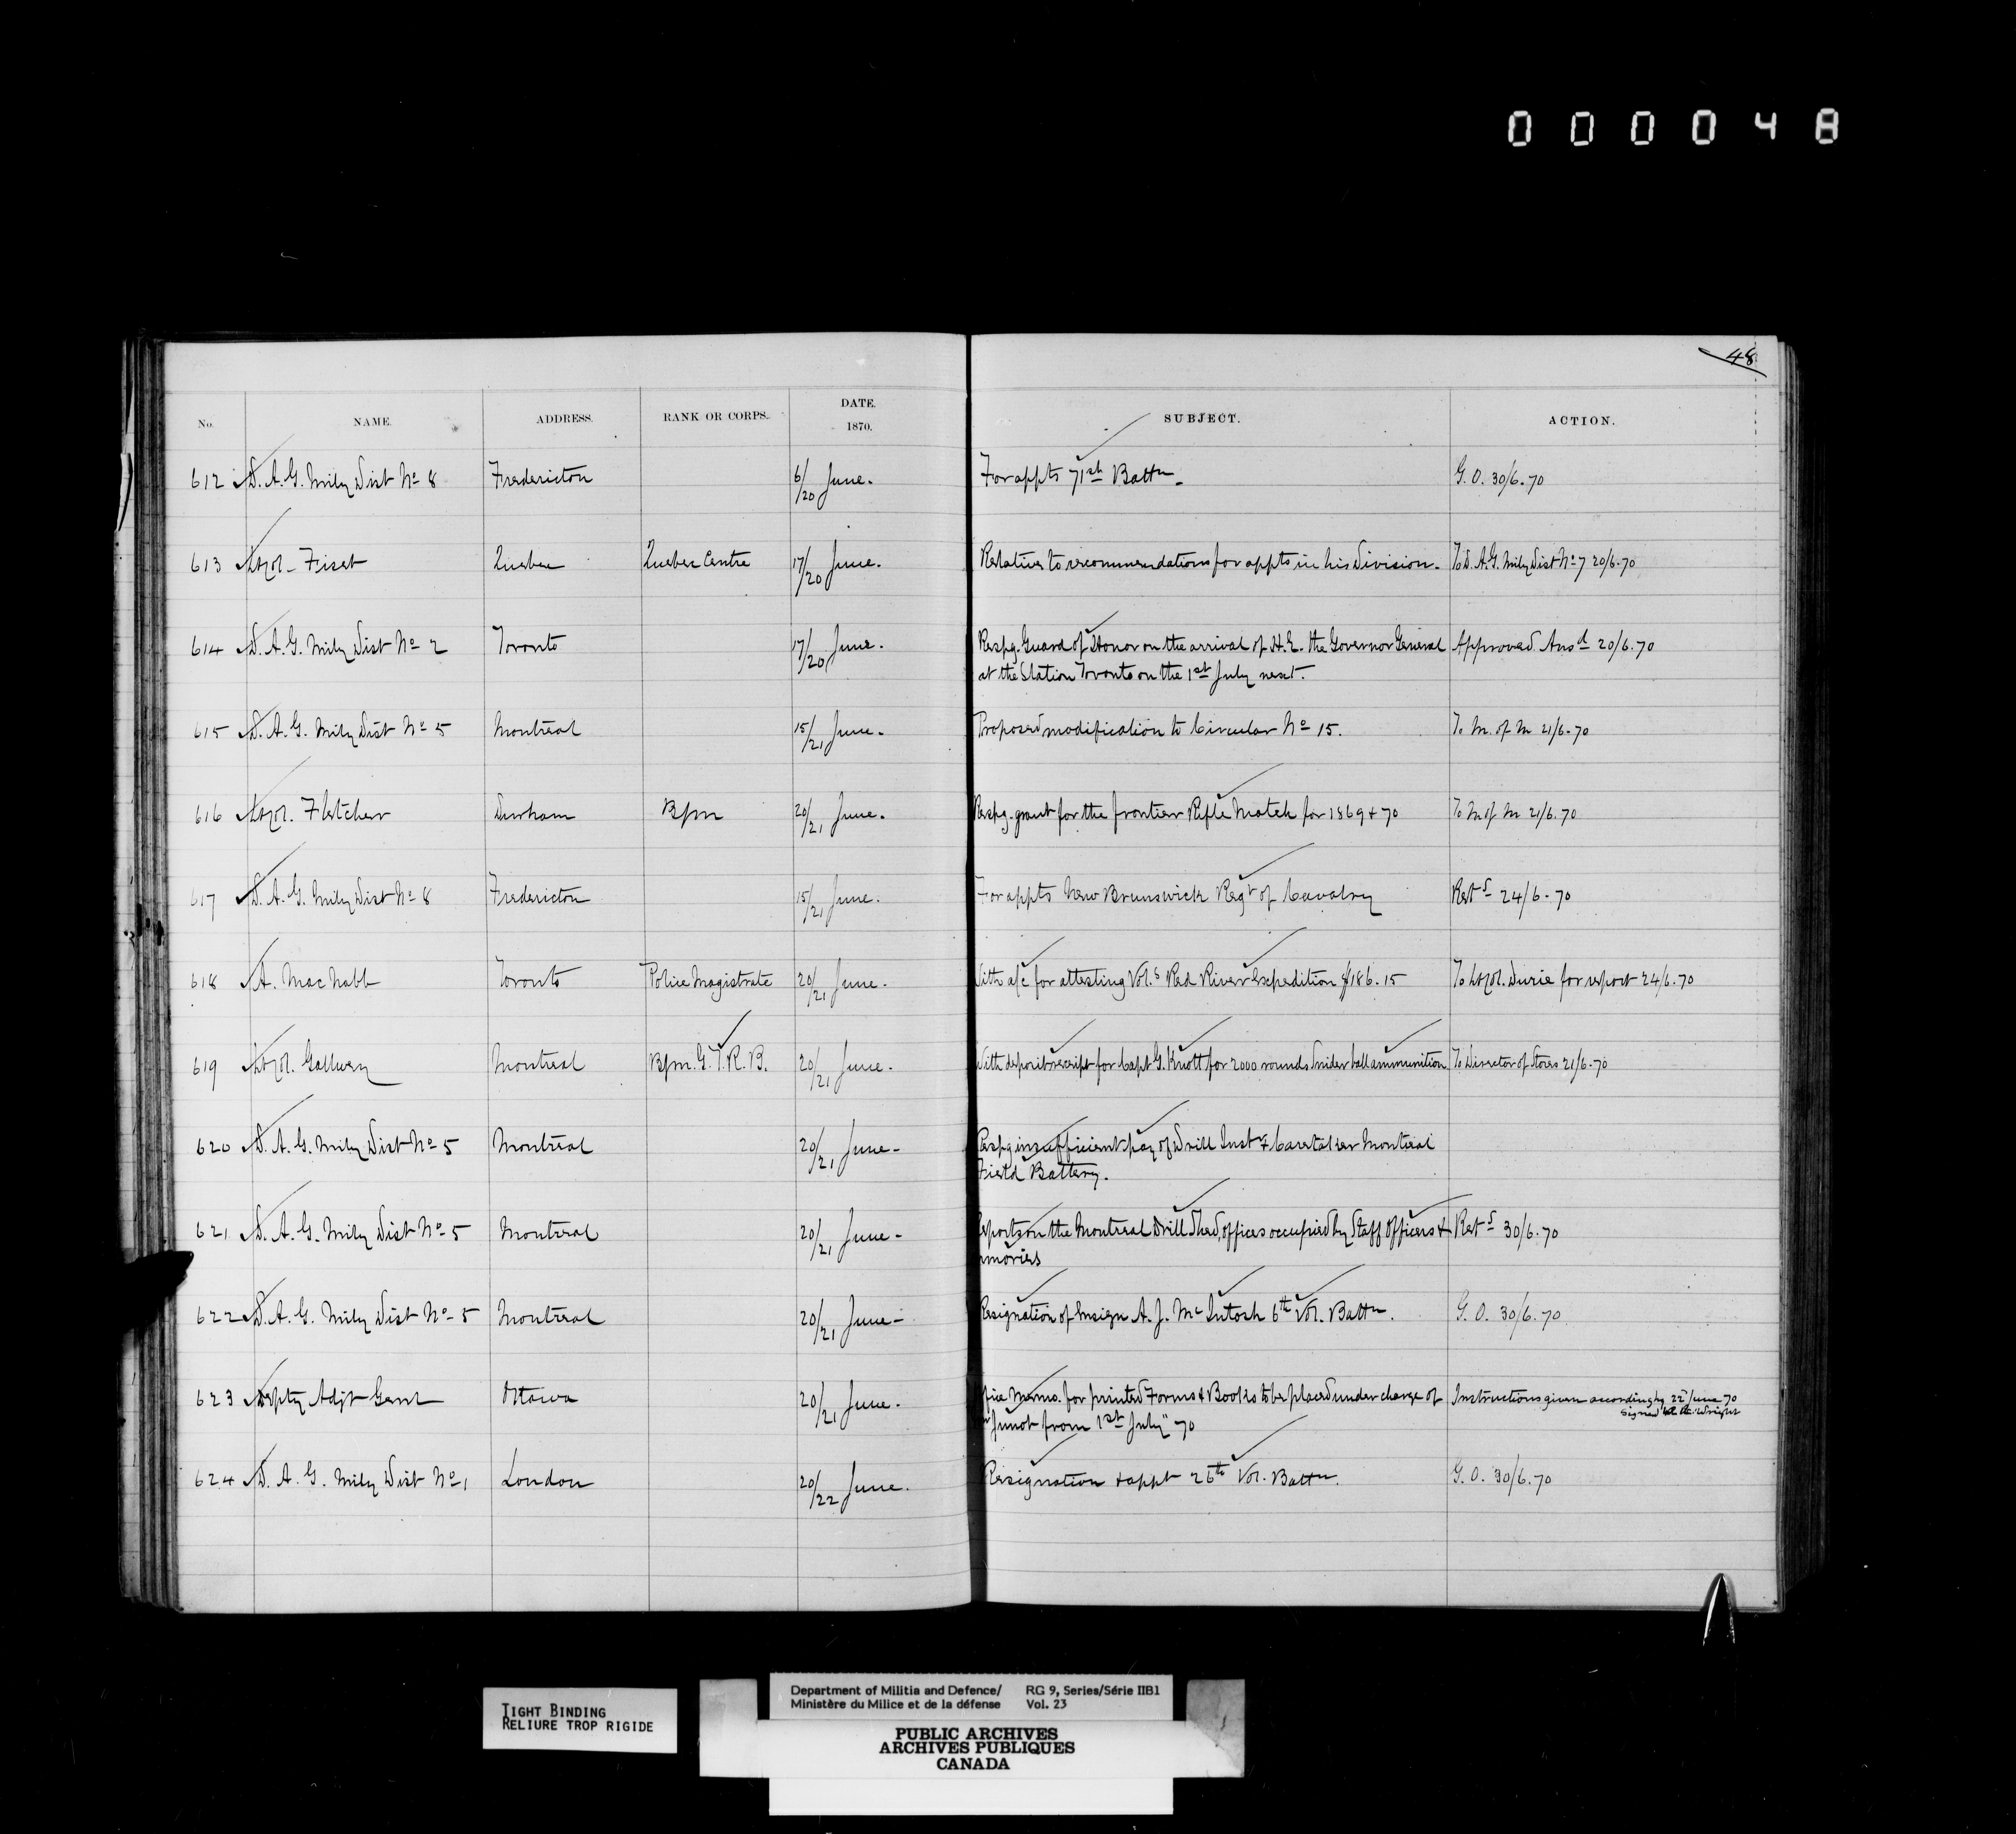 000048
48
No. NAME. ADDRESS. RANK OR CORPS. DATE. 1870. SUBJECT. ACTION.
612 D. A. G. Mily Dist No 8 Fredericton 6/20 June. For appts 71st Battn. G. O. 30/6.70
613 Lt Col. Fiset Quebec Quebec Centre 17/20 June. Relative to recommendations for appts in his Division. To D. A. G. Mily Dist No 7 20/6.70
614 D. A. G. Mily Dist No 2 Toronto 17/20 June. Respg. Guard of Honor on the arrival of H. E. the Governor General Approved Ansd 20/6.70
at the Station Toronto on the 1st July next.
615 D. A. G. Mily Dist No 5 Montreal 15/21 June. Proposed modification to Circular No 15. To M. of M 21/6.70
616 Lt Col. Fletcher Durham Bpm 20/21 June. Respg. grant for the frontier Rifle Match for 1869 & 70 To M of M 21/6.70
617 D. A. G. Mily Dist No 8 Fredericton 15/21 June. For appts New Brunswick Regt of Cavalry Rets 24/6.70
618 A. MacNabb Toronto Police Magistrate 20/21 June. With a/c for attesting Vols Red River Expedition $186.15 To Lt Col. Durie for report 24/6.70
619 Lt Col. Gallwey Montreal Bpm. G. T. R. B. 20/21 June. With deposit receipt for Capt G. Knott for 2000 rounds Snider ball ammunition To Director of Stores 21/6.70
620 D. A. G. Mily Dist No 5 Montreal 20/21 June. Respg insufficient pay of Drill Instr & Caretaker Montreal
Field Battery.
621 D. A. G. Mily Dist No 5 Montreal 20/21 June. eports on the Montreal Drill Shed, offices occupied by Staff Officers & Rets 30/6.70
rmories
622 D. A. G. Mily Dist No 5 Montreal 20/21 June. Resignation of Ensign A. J. McIntosh 6th Vol. Battn. G. O. 30/6.70
623 Depty Adjt Genl Ottawa 20/21 June. ffice Memo. for printed Forms & Books to be placed under charge of Instructions given accordingly 22d June 70
Junot from 1st July" 70 Signed Wright
624 D. A. G. Mily Dist No 1 London 20/22 June. Resignation & appt 26th Vol. Battn. G. O. 30/6.70
TIGHT BINDING
RELIURE TROP RIGIDE
Department of Militia and Defence/ RG 9, Series/Série IIB1
Ministère du Milice et de la défense Vol. 23
PUBLIC ARCHIVES
ARCHIVES PUBLIQUES
CANADA